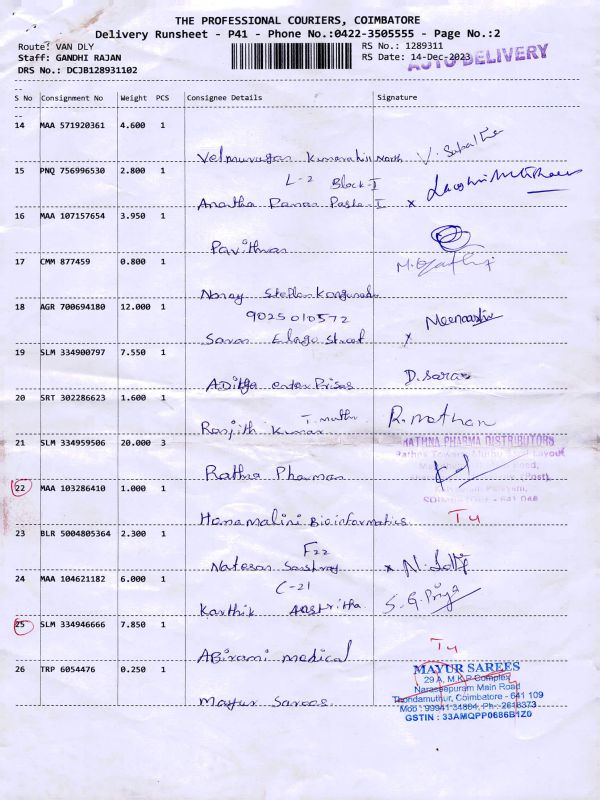 THE PROFESSIONAL COURIERS, COIMBATORE
Delivery Runsheet - P41 - Phone No.:0422-3505555 - Page No.:2
Route: VAN DLY
RS No.: 1289311
Staff: GANDHI RAJAN
RS Date: 14-Dec-2023
AUTO DELIVERY
DRS No.: DCJB128931102
S No Consignment No Weight PCS Consignee Details Signature
14 MAA 571920361 4.600 1
Velmurugan Kumarahill North
15 PNQ 756996530 2.800 1
L-2 Block-I
Anatha
16 MAA 107157654 3.950 1
Pavithran
17 CMM 877459 0.800 1
18 AGR 700694180 12.000 1
9025010572
Saran Street
Meenaastir
19 SLM 334900797 7.550 1
Aditya enterPrises D.saras
20 SRT 302286623 1.600 1
Ranjith Kumar R.mathan
21 SLM 334959506 20.000 3
RATHNA PHARMA DISTRIBUTORS
Rathna Pharman
22 MAA 103286410 1.000 1
Hanamalini Bioinformatics T4
23 BLR 5004805364 2.300 1
F22
Natasan
24 MAA 104621182 6.000 1
C-21
Karthik S.G.Priya
25 SLM 334946666 7.850 1
ABirami medical T4
26 TRP 6054476 0.250 1
MAYUR SAREES
29 A, M.K.P. Complex
Naraseepuram Main Road
Thondamuthur, Coimbatore - 641 109
GSTIN : 33AMQPP0686B1Z0
Mayur Sarees